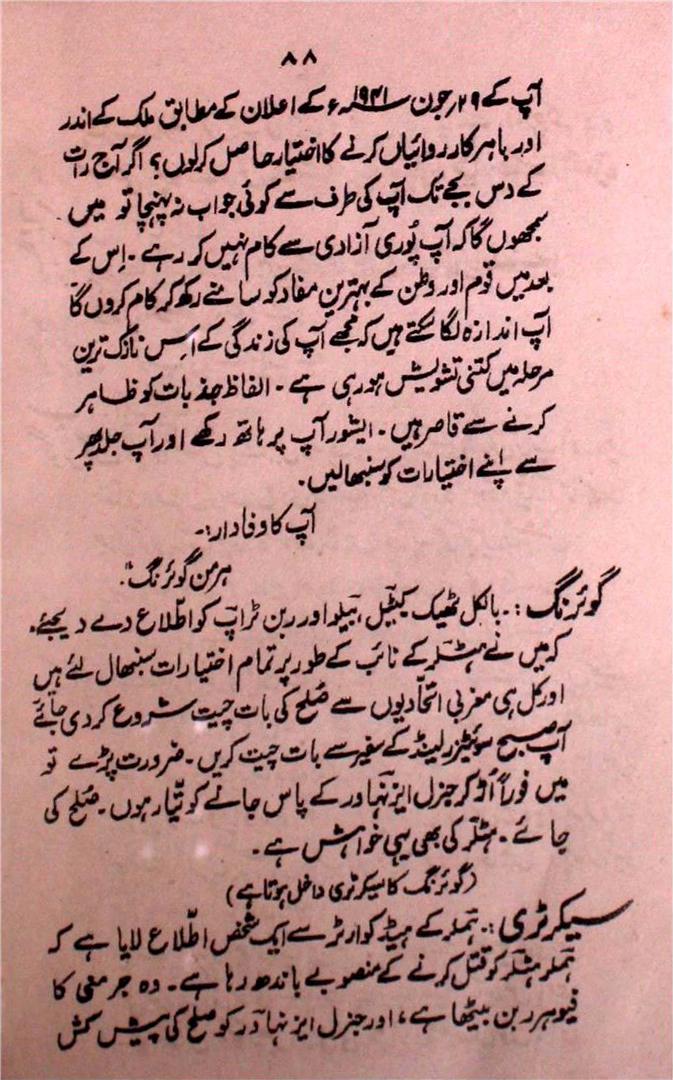 ۸۸
آپ کے ۲۹؍جون ۱۹۴۱ء کے اعلان کے مطابق ملک کے اندر
اور باہر کارروائیاں کرنے کا اختیار حاصل کرلوں؟ اگر آج رات
کے دس بجے تک آپ کی طرف سے کوئی جواب نہ پہنچا تو میں
سمجھوں گا کہ آپ پُوری آزادی سے کام نہیں کر رہے۔ اِس کے
بعد میں قوم اور وطن کے بہترین مفاد کو سامنے رکھ کر کام کروں گا
آپ اندازہ لگا سکتے ہیں کہ مجھے آپ کی زندگی کے اس نازک ترین
مرحلہ میں کتنی تشویش ہو رہی ہے۔ الفاظ جذبات کو ظاہر
کرنے سے قاصر ہیں۔ ایشور آپ پر ہاتھ رکھے اور آپ جلد پھر
سے اپنے اختیارات کو سنبھالیں۔
آپ کا وفادار:۔
ہرمن گوئرنگ"۔
گوئرنگ:۔ بالکل ٹھیک کیٹیل، ہیلو اور ربن ٹراپ کو اطّلاع دے دیجئے۔
کہ میں نے ہٹلر کے نائب کے طور پر تمام اختیارات سنبھال لئے ہیں
اور کل ہی مغربی اتحادیوں سے صُلح کی بات چیت شروع کر دی جائے
آپ صبح سوئٹزرلینڈ کے سفیر سے بات چیت کریں۔ ضرورت پڑے تو
میں فوراً اُڑ کر جنرل ایزنہاور کے پاس جانے کو تیّار ہوں۔ صُلح کی
جائے۔ ہٹلر کی بھی یہی خواہش ہے۔
(گوئرنگ کا سیکرٹری داخل ہوتا ہے)
سیکرٹری:۔ ہملر کے ہیڈ کوارٹر سے ایک شخص اطّلاع لایا ہے کہ
ہملر ہٹلر کو قتل کرنے کے منصوبے باندھ رہا ہے۔ وہ جرمنی کا
فیوہرر بن بیٹھا ہے، اور جنرل ایزنہادر کو صلح کی پیش کش